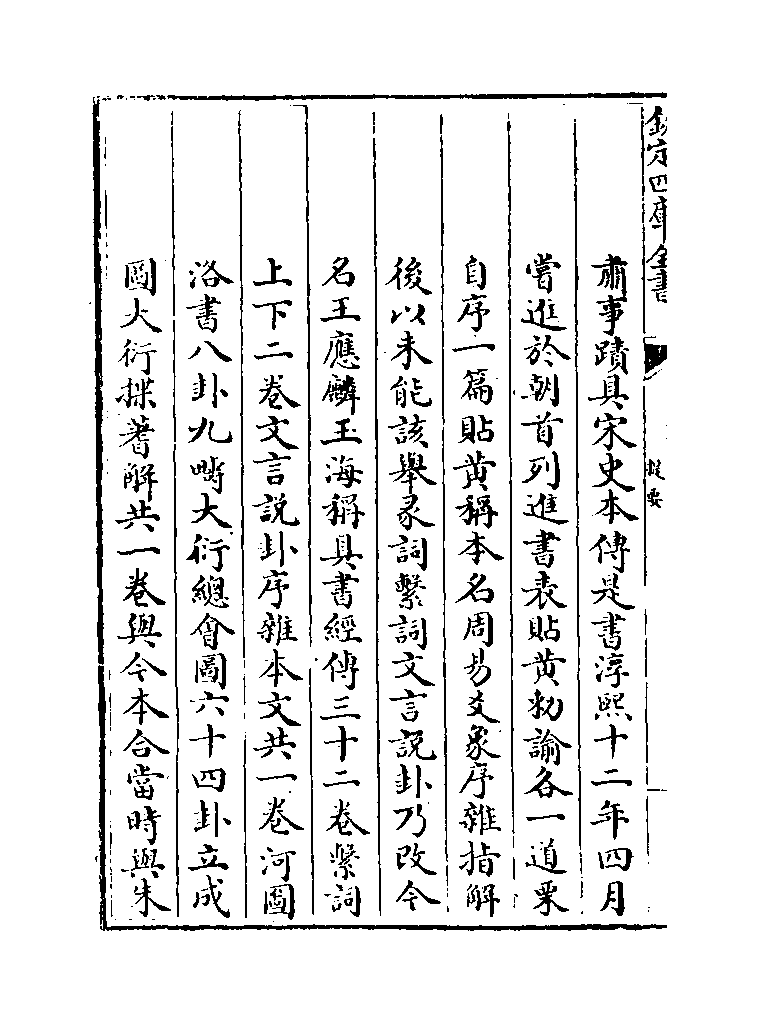 欽定四庫全書
提要
肅事蹟具宋史本傳是書淳熙十二年四月
嘗進於朝首列進書表貼黄勅諭各一道栗
自序一篇貼黄稱本名周易爻象序雜指解
後以未能該舉彖詞繫詞文言説卦乃改今
名王應麟玉海稱其書經傳三十二卷繫詞
上下二卷文言説卦序雜本文共一卷河圖
洛書八卦九疇大衍總會圖六十四卦立成
圖大衍揲蓍解共一卷與今本合當時與朱